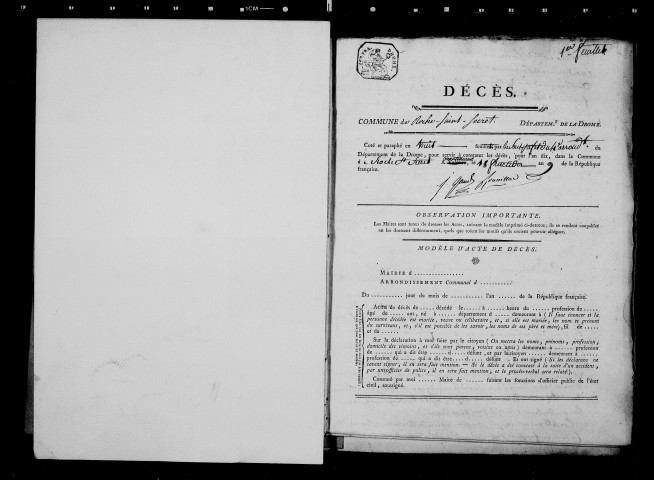 1er feuillet
DÉCÈS.
COMMUNE de Roche-Saint-Secret. DÉPARTEM.t DE LA DROME.
Coté et paraphé en huit par du
Département de la Drome, pour servir à constater les décès, pour l'an dix, dans la Commune
Roche St Secret le 18 fructidor an 9 de la République
française.
OBSERVATION IMPORTANTE.
Les Maires sont tenus de dresser les Actes, suivant le modèle imprimé ci-dessous; ils se rendent coupables
en les donnant différemment, quels que soient les motifs qu'ils croient pouvoir alléguer.
MODÈLE D'ACTE DE DÉCÈS.
MAIRIE d
ARRONDISSEMENT Communal d
Du ...... jour du mois de ...... l'an ...... de la République française.
Acte de décès de ...... décédé le ...... à ...... heure du ...... profession de ......
âgé de ...... ans, né à ...... département d ...... demeurant à ...... (Il faut énoncer si la
personne décédée est mariée, veuve ou célibataire, et, si elle est mariée, les nom et prénom
du survivant, et, s'il est possible de les savoir, les noms de ses père et mère), fil de ......
et du ......
Sur la déclaration à moi faite par le citoyen (On mettra les noms, prénoms, profession,
domicile des témoins, et s'ils sont parens, voisins ou amis) demeurant à ...... profession
de ...... qui a dit être ...... d ...... défunt, et par le citoyen ...... demeurant à ......
profession de ...... qui a dit être ...... d ...... défunt. Et ont signé (Si les déclarans ne
savent signer, il en sera fait mention. — Si le décès a été constaté à la suite d'un accident,
par un officier de police, il en sera fait mention, et le procès-verbal sera relaté).
Constaté par moi ...... Maire de ...... faisant les fonctions d'officier public de l'état
civil, soussigné.